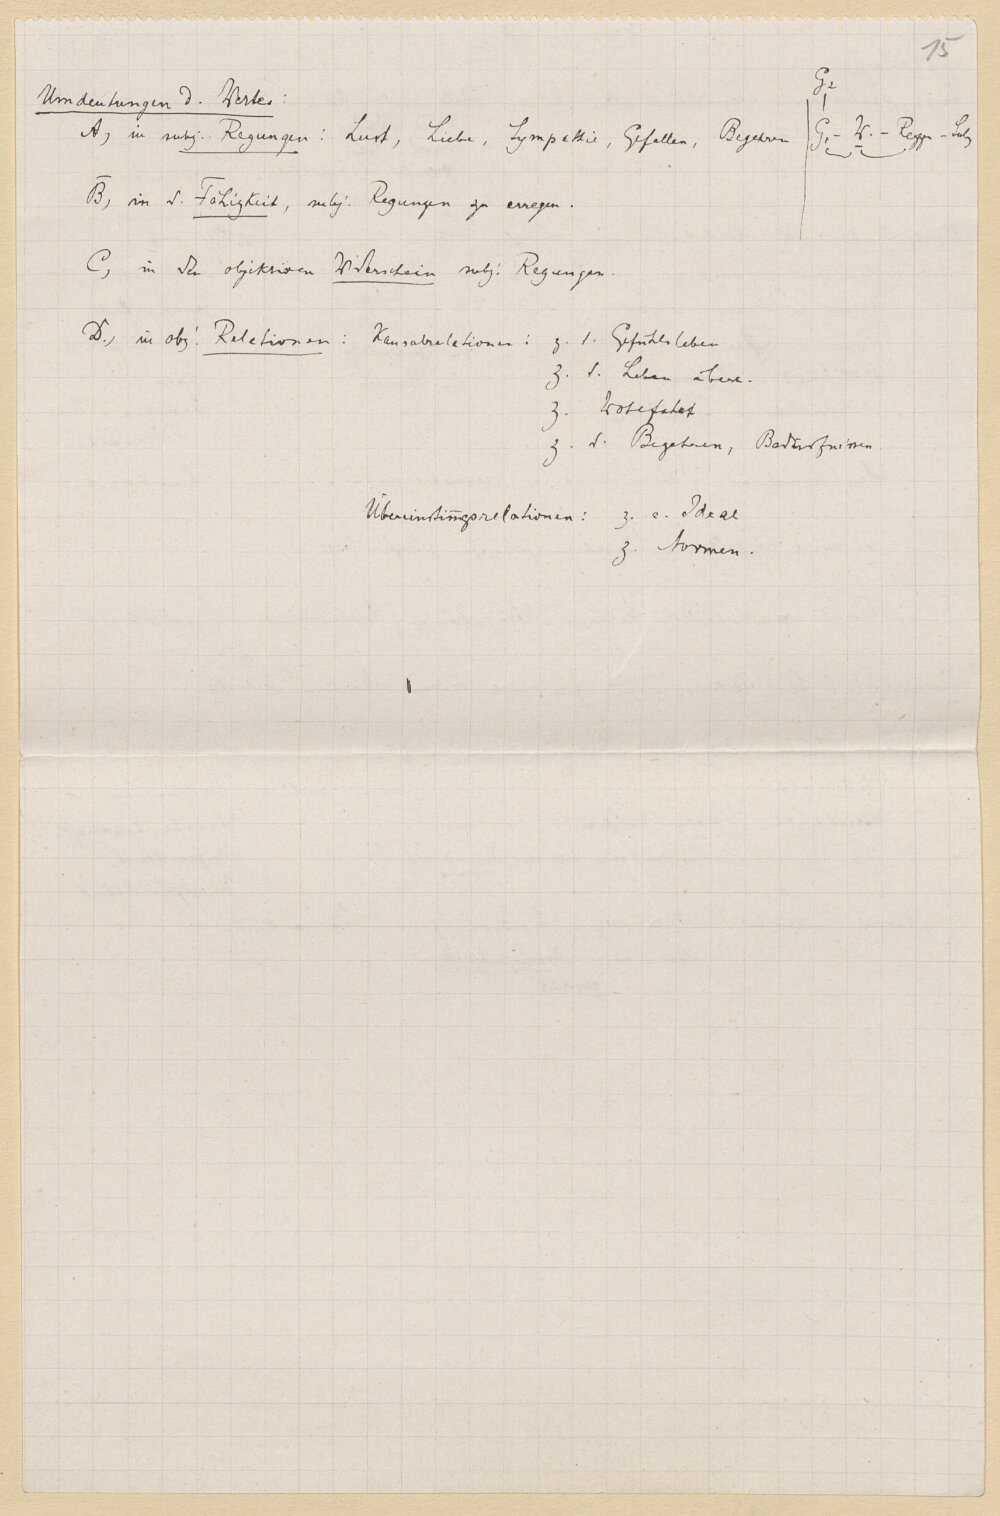 15
Umdeutungen d. Wertes:
A, in subj. Regungen: Lust, Liebe, Sympathie, Gefallen, Begehren
G2
G1 - W. -
B, in d. Fähigkeit, subj. Regungen zu erregen.
C, in den objektiven Widerschein subj. Regungen.
D., in obj. Relationen: Kausalrelationen: z. d. Gefühlsleben
z. d. Leben überh.
z. Wohlfahrt
z. d. Begehren, Bedürfnissen.
Übereinstimgsrelationen: z. e. Ideal
z. Normen.